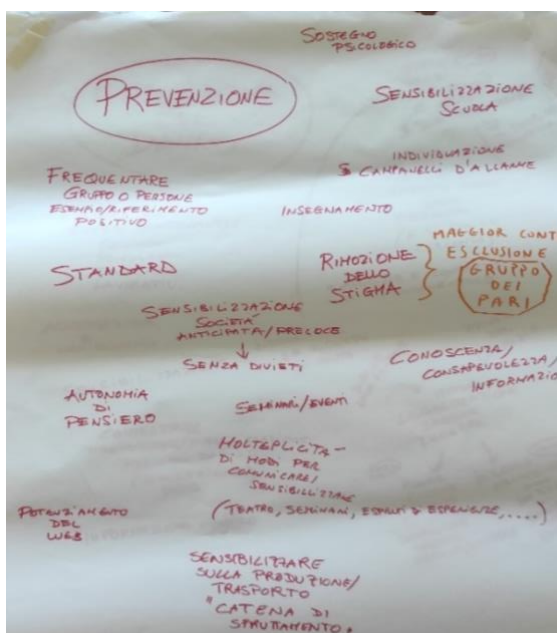 SOSTEGNO
PSICOLOGICO
PREVENZIONE
SENSIBILIZZAZIONE
SCUOLA
INDIVIDUAZIONE
CAMPANELLI D'ALLARME
FREQUENTARE
GRUPPO O PERSONE
ESEMPIO/RIFERIMENTO
POSITIVO
INSEGNAMENTO
STANDARD
RIMOZIONE
DELLO
STIGMA
MAGGIOR CONT
ESCLUSIONE
GRUPPO
DEI
PARI
SENSIBILIZZAZIONE
SOCIETÀ
ANTICIPATA/PRECOCE
↓
SENZA DIVIETI
CONOSCENZA/
CONSAPEVOLEZZA/
INFORMAZIO
AUTONOMIA
DI
PENSIERO
SEMINARI/EVENTI
MOLTEPLICITÀ
DI MODI PER
COMUNICARE/
SENSIBILIZZARE
(TEATRO, SEMINARI, ESPERIENZE,....)
POTENZIAMENTO
DEL
WEB
SENSIBILIZZARE
SULLA PRODUZIONE/
TRASPORTO
"CATENA DI
SFRUTTAMENTO"